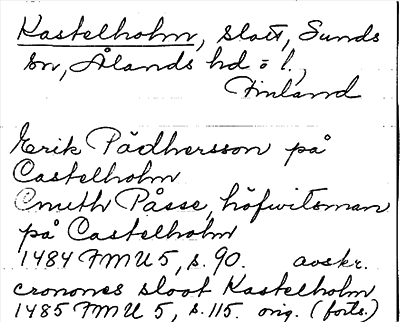 Kastelholm, slott, Sunds
sn, Ålands hd o l.,
Finland
Erik Pådhersson på
Castelholm
Cnuth Påsse, höfwitsman
på Castelholm
1484 FMU 5, s. 90. avskr.
cronones sloot Kastelholm
1485 FMU 5, s. 115. orig. (forts.)